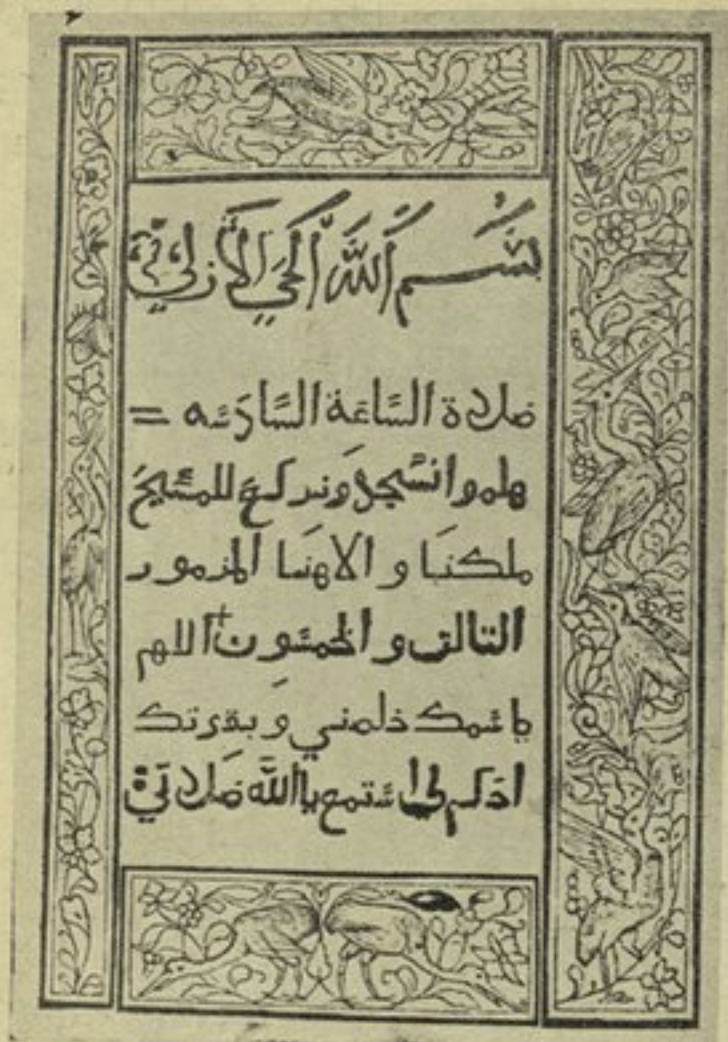 بسم الله الحي الازلي
صلاة الساعة السادسه =
هلموا نسجد ونركع للمسيح
ملكنا و الاهنا المزمور
التالت و الخمسون + اللهم
باسمك خلصني و بقوتك
احكم لي استمع يا الله صلاتي